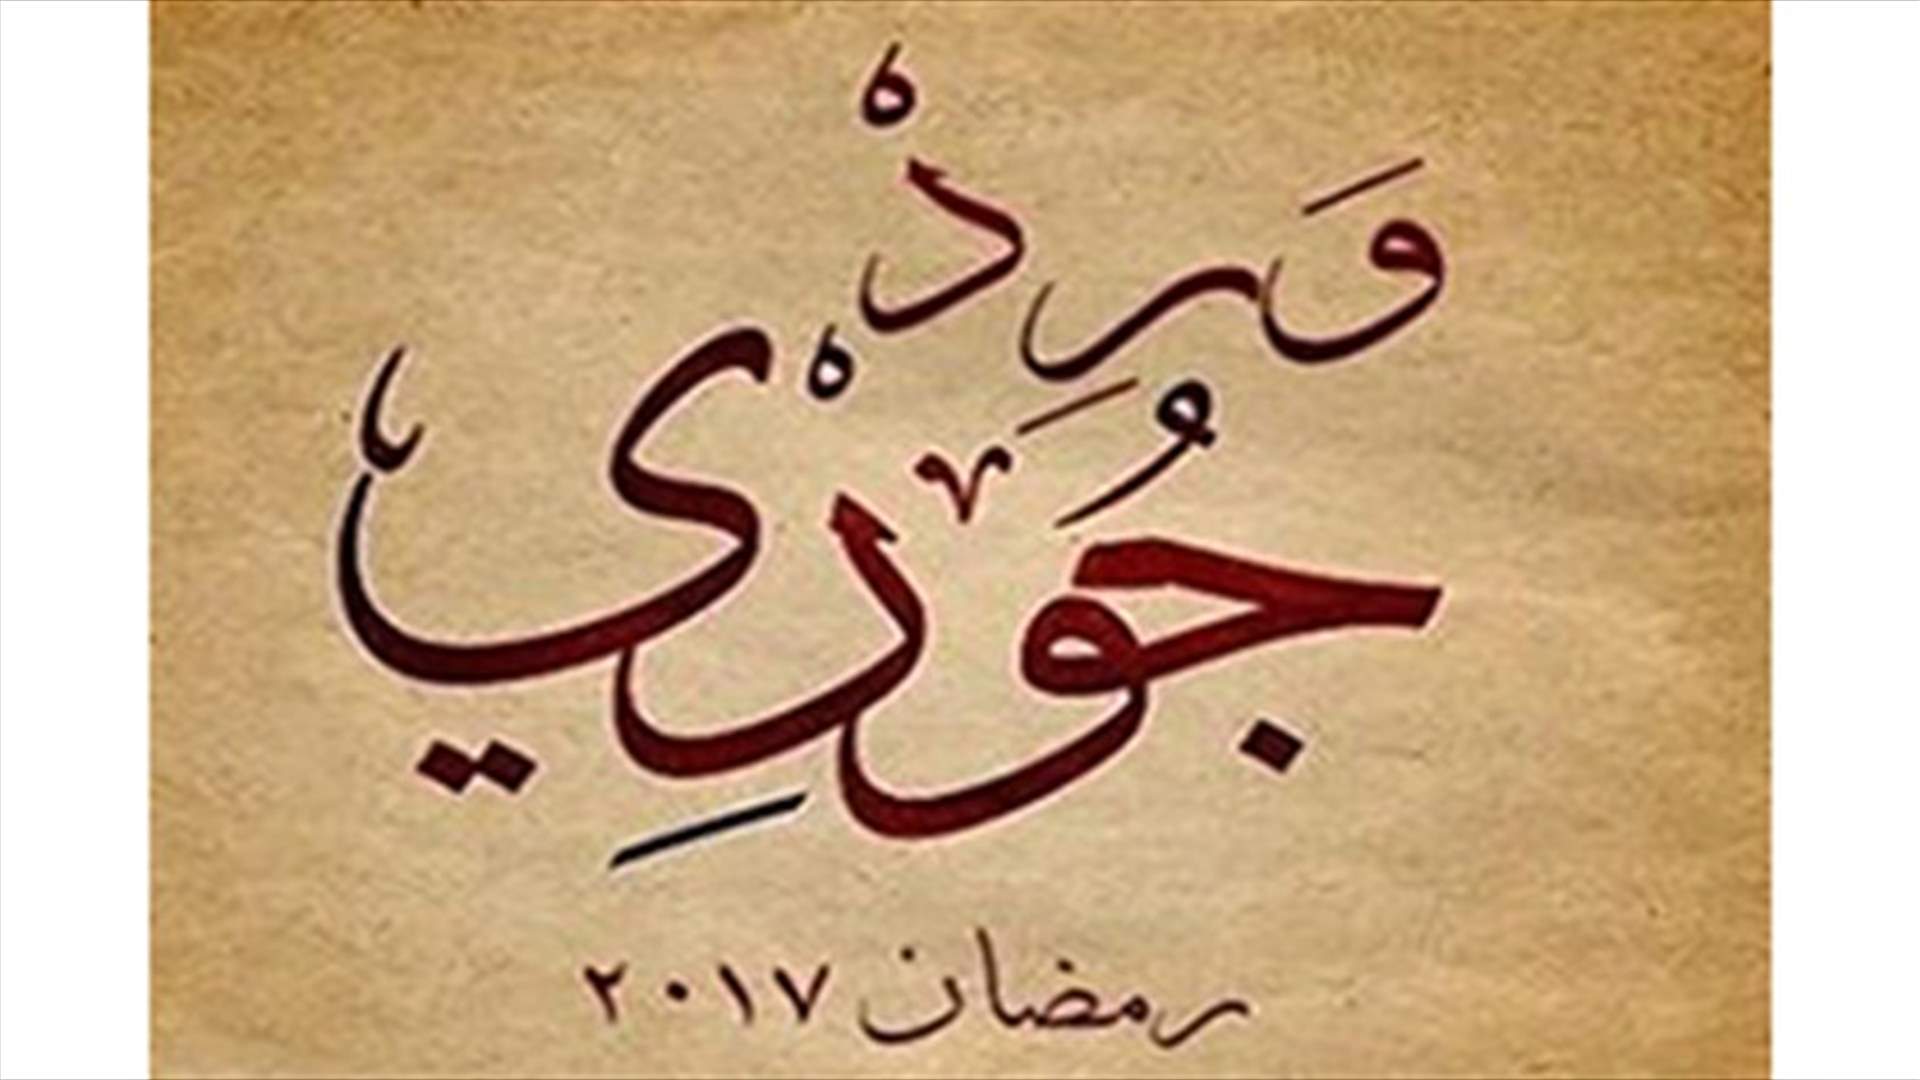 وَرِدْ
جُوْرِي
رمضان ٢٠١٧